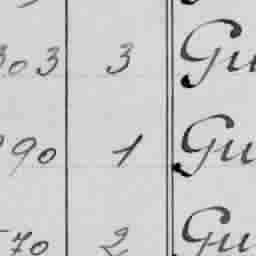 303 3 Gu
90 1 Gu
70 2 Gu